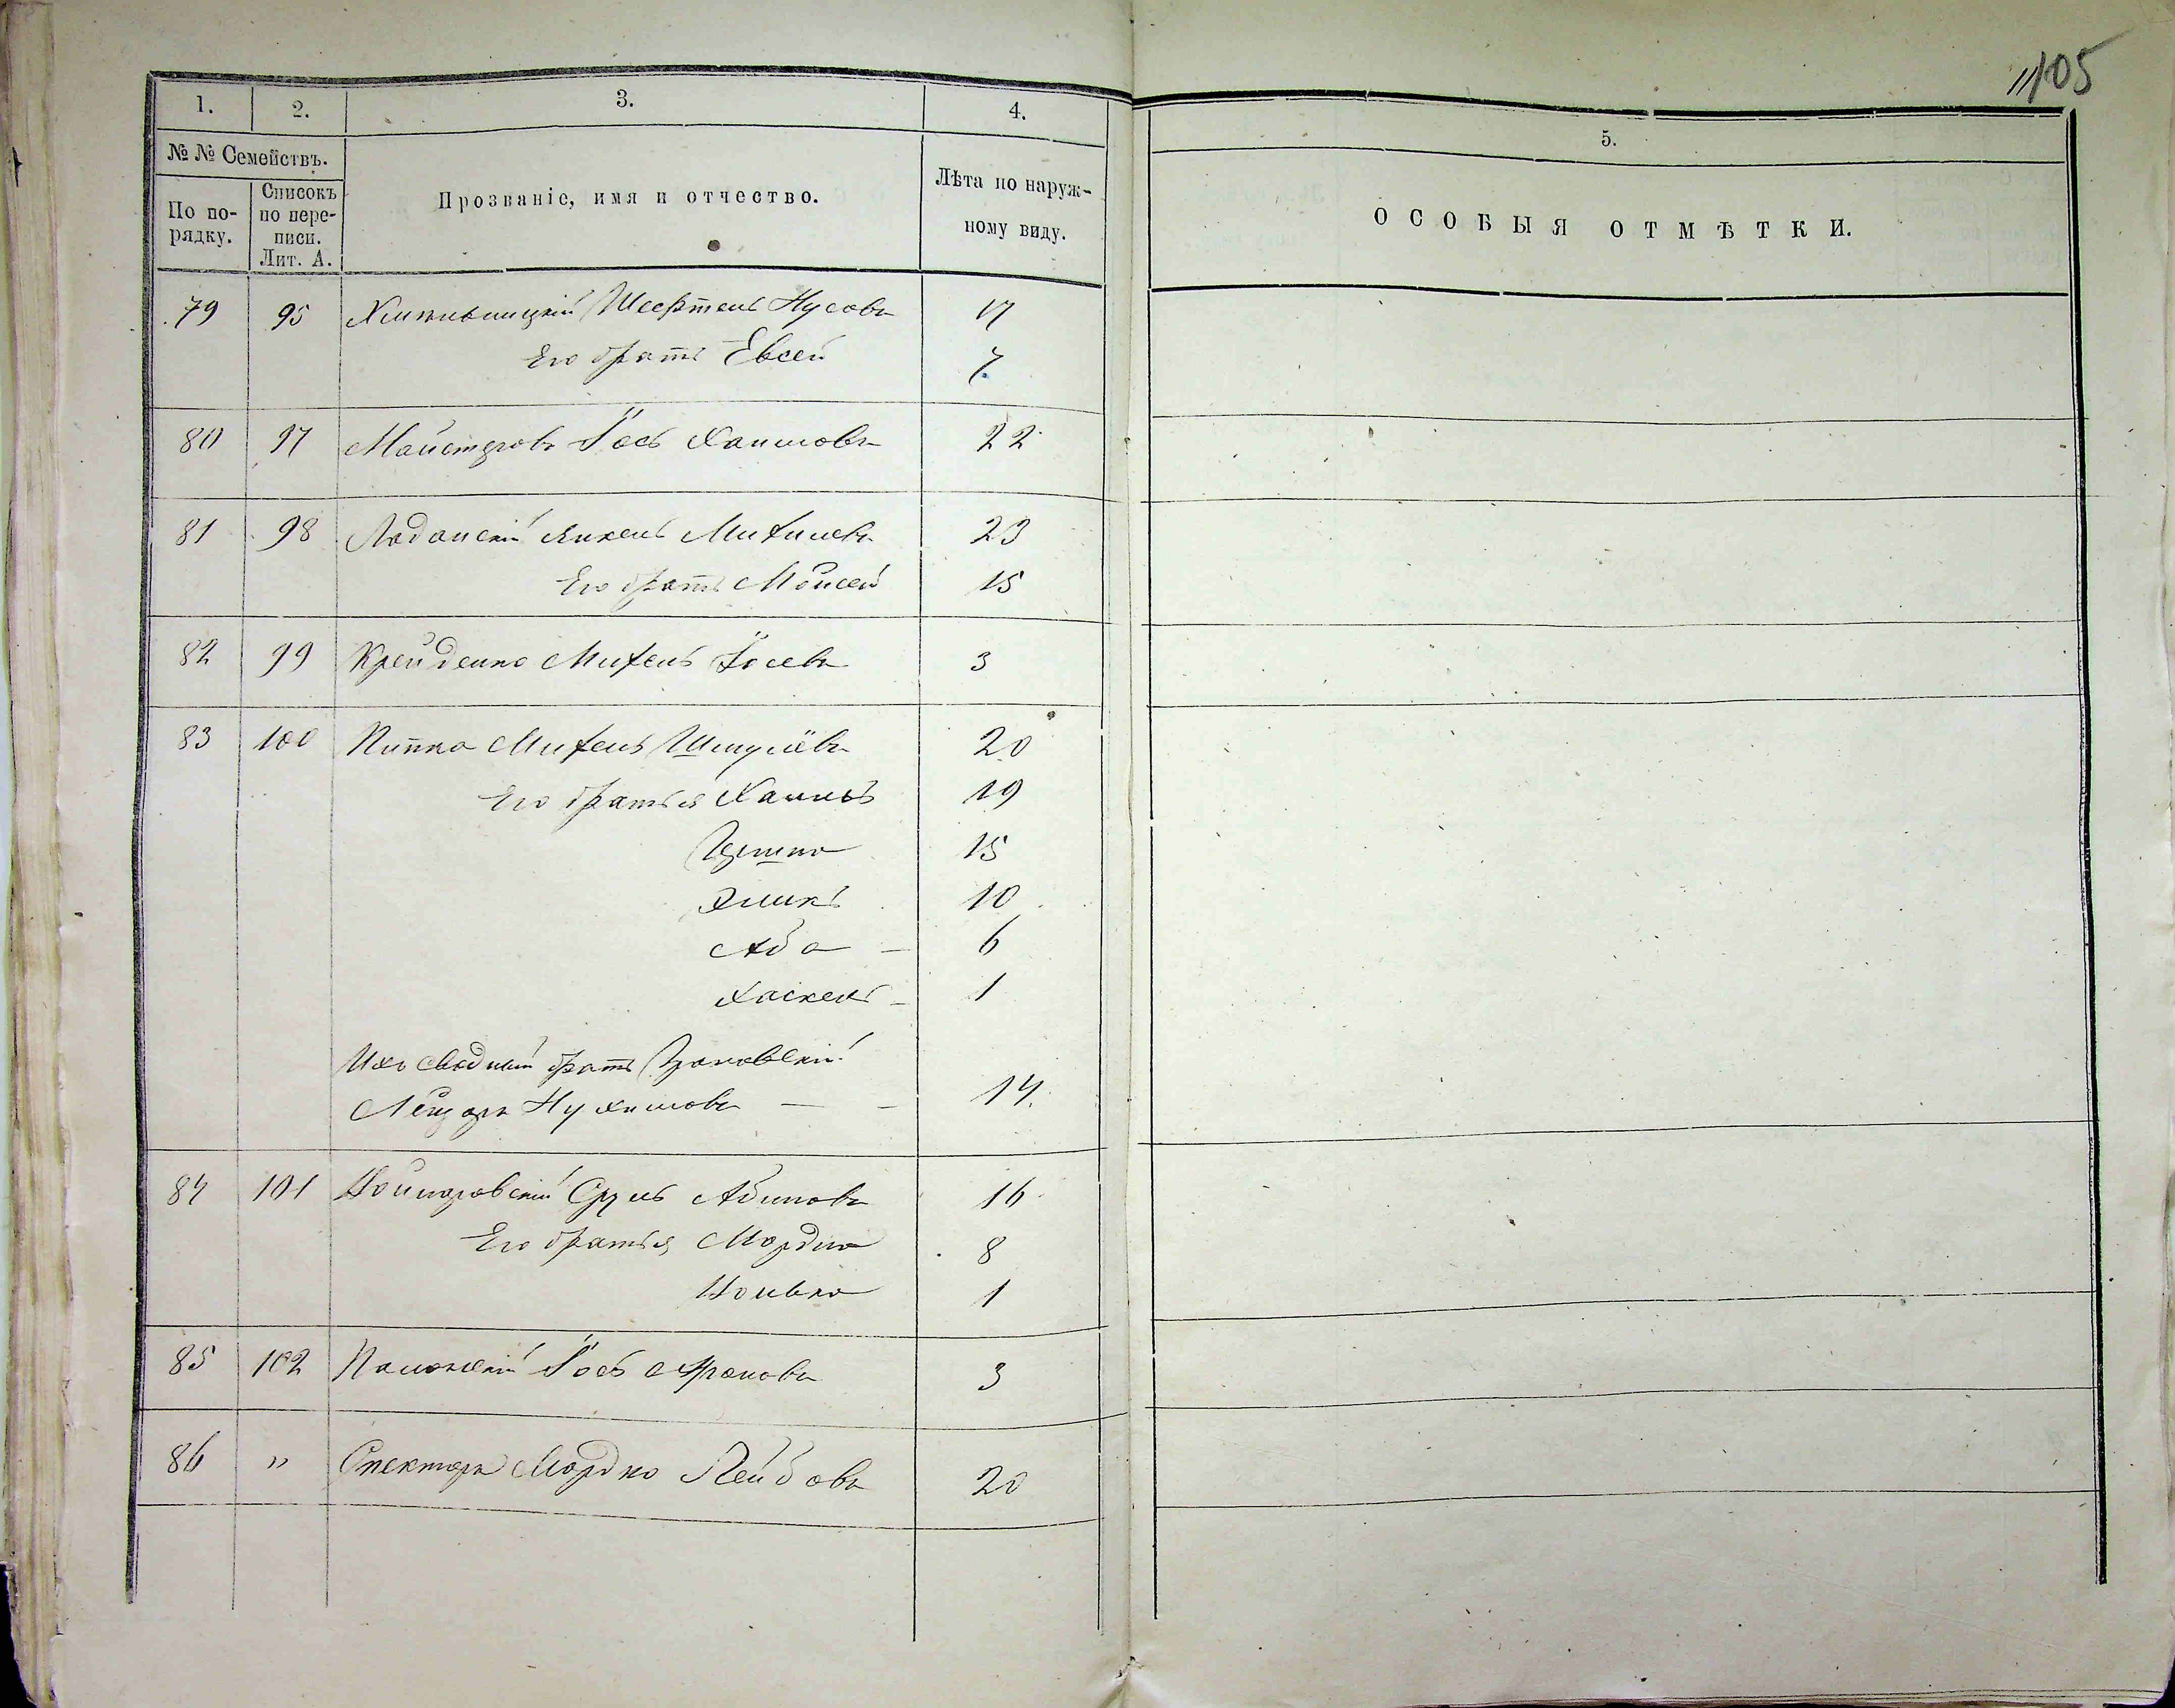 105
1. 2. 3. 4. 5.
№ № Семействъ.
По порядку.
Списокъ по переписи. Лит. А.
Прозваніе, имя и отчество.
Лѣта по наружному виду.
ОСОБЫЯ ОТМѢТКИ.
79 95 Хмельницкій Шефтель Нусовъ 17
Его братъ Евсей 7
80 97 Майстровъ Іось Хаимовъ 22
81 98 Ладанскій Янкель Михилевъ 23
Его братъ Мойсей 15
82 99 Крейденко Михель Іосевъ 3
83 100 Пипко Михель Шмулёвъ 20
Его братья Хаимъ 19
Ицько 15
Эликъ 10
Аба — 6
Хаскель — 1
Ихъ сводный братъ
Лейзаръ Нухимовъ — — 14
84 101 Сруль Абимовъ 16
Его братья Мордко 8
1
85 102 Іось Ароновъ 3
86 " Спекторъ Мордко Лейбовъ 20